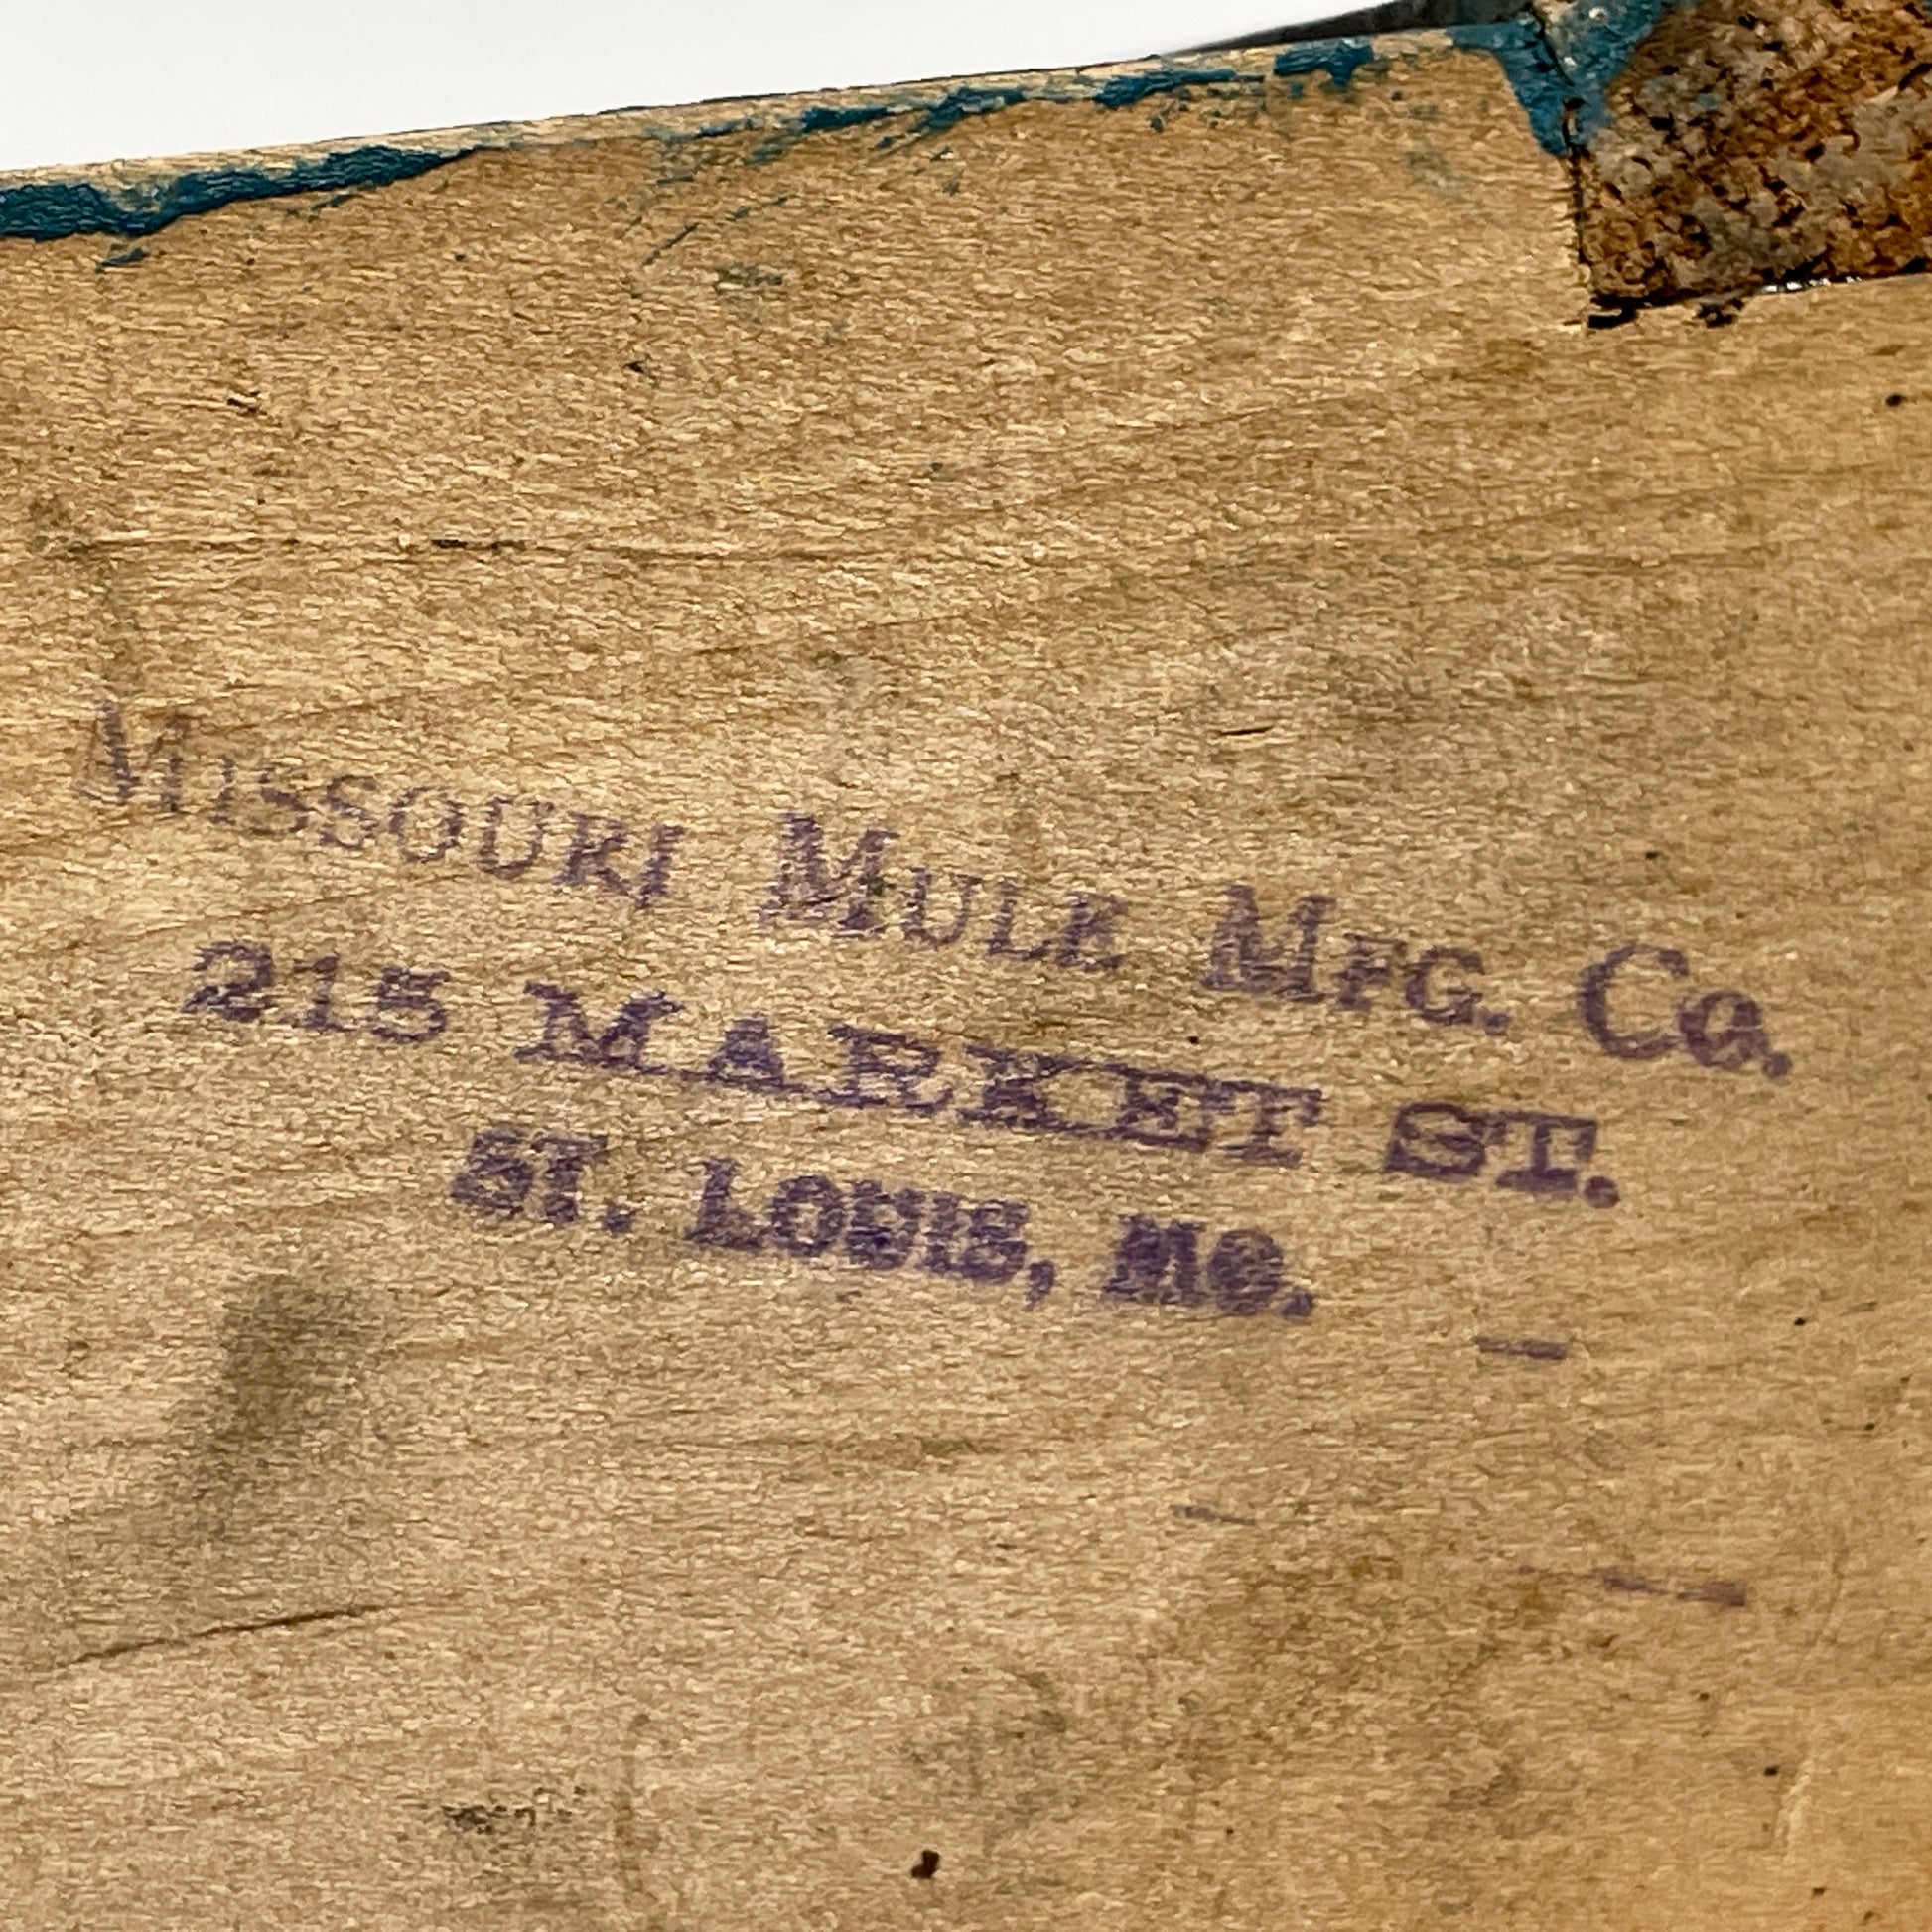 MISSOURI MULE MFG. Co.
215 MARKET ST.
ST. LOUIS, MO.